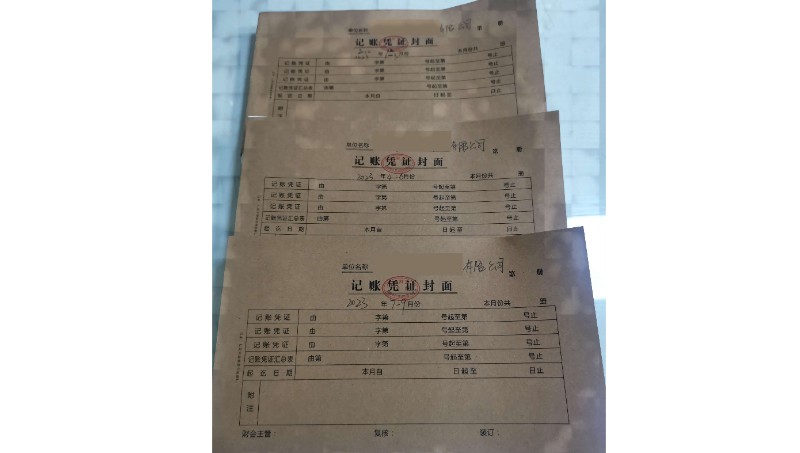 单位名称 有限公司 第 册
记账凭证封面
2023 年 月份 本月份共 册
记账凭证 由 字第 号起至第 号止
记账凭证 由 字第 号起至第 号止
记账凭证 由 字第 号起至第 号止
记账凭证汇总表 由第 号起至第 号止
起讫日期 本月自 日起至 日止
附
单位名称 有限公司 第 册
记账凭证封面
2023 年 4-6月份 本月份共 册
记账凭证 由 字第 号起至第 号止
记账凭证 由 字第 号起至第 号止
记账凭证 由 字第 号起至第 号止
记账凭证汇总表 由第 号起至第 号止
起讫日期 本月自 日起至 日止
单位名称 有限公司 第 册
记账凭证封面
2023 年 7-9月份 本月份共 册
记账凭证 由 字第 号起至第 号止
记账凭证 由 字第 号起至第 号止
记账凭证 由 字第 号起至第 号止
记账凭证汇总表 由第 号起至第 号止
起讫日期 本月自 日起至 日止
附
注
财会主管： 复核： 装订：